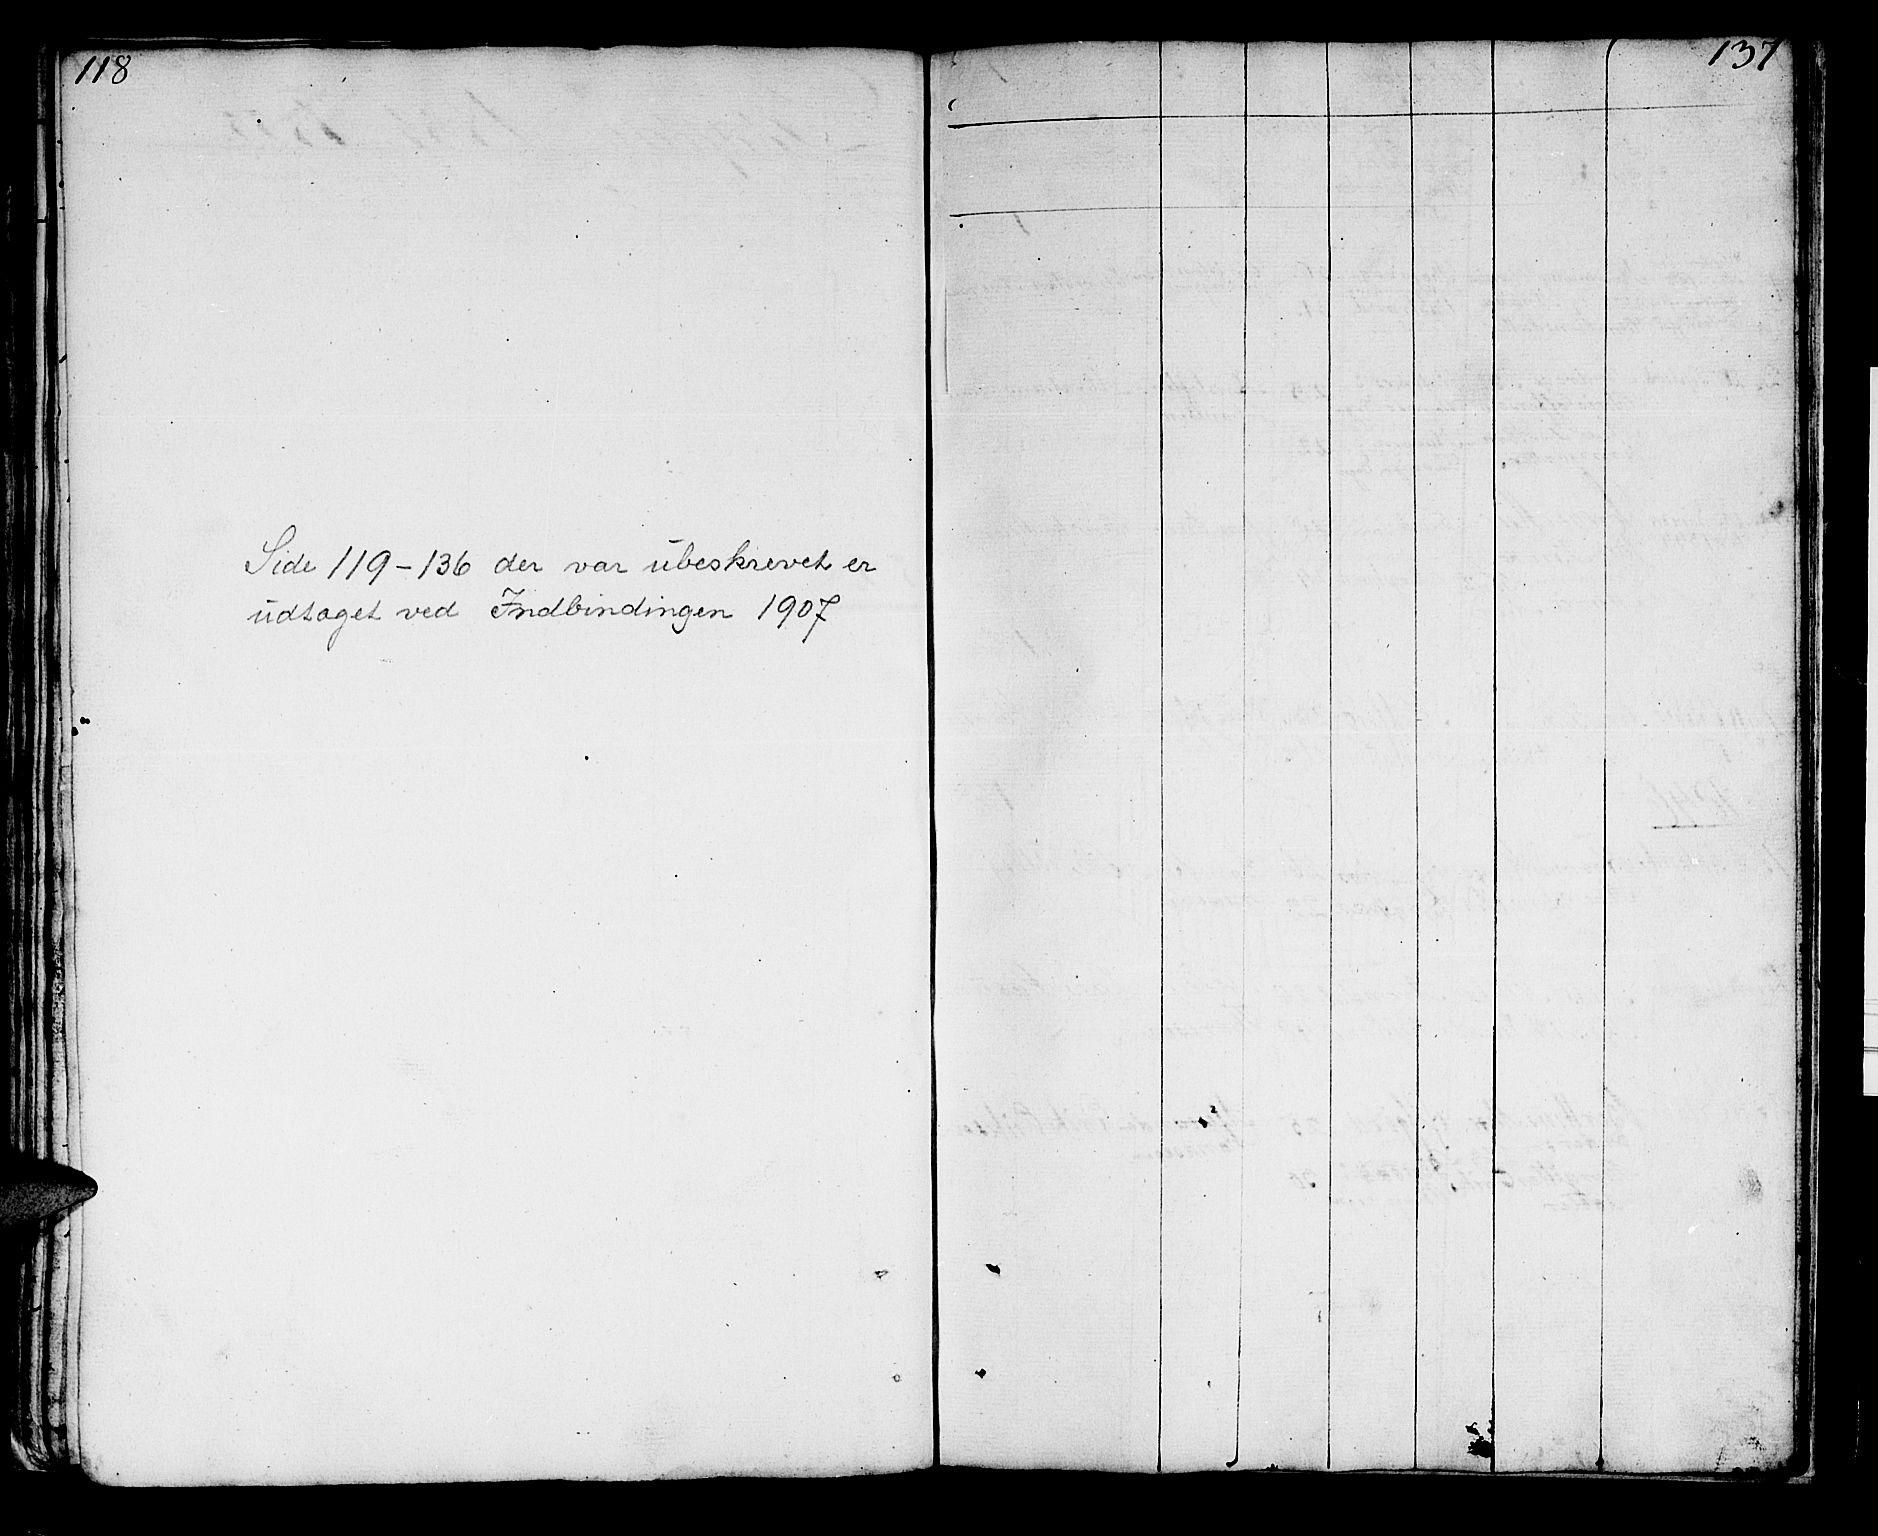 118
Side 119-136 der var ubeskrevet er
udtaget ved Indbindingen 1907
137